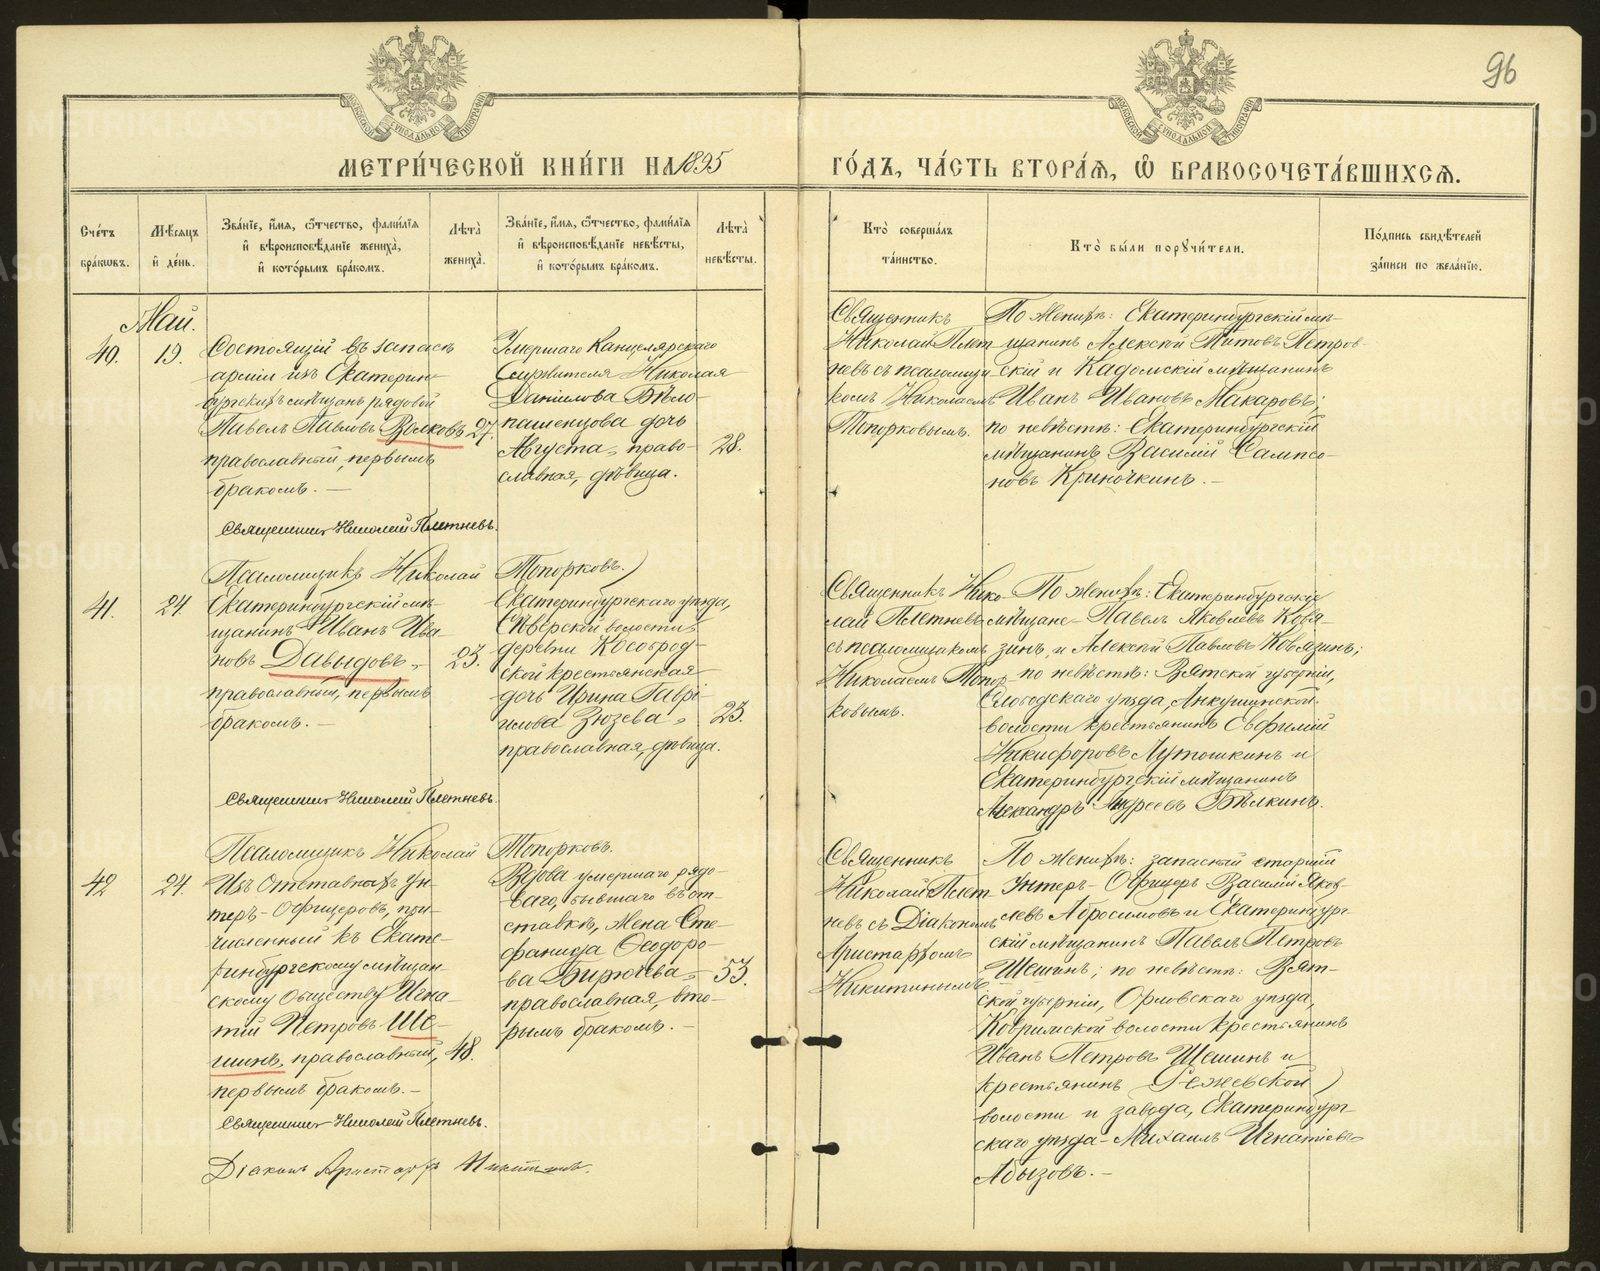 96
МЕТРИ́ЧЕСКОЙ КНИ́ГИ НА 1895
ГО́ДЪ, ЧА́СТЬ ВТОРА́Ѧ, Ѽ БРАКОСОЧЕТА́ВШИХСѦ.
Сче́тъ бра́кѡвъ.
Мѣ́сяцъ и де́нь.
Зва́нїе, и́мя, ѻ́тчество, фами́лїя и вѣроисповѣ́данїе жениха̀, и кото́рымъ бра́комъ.
Лѣ́та жениха̀.
Зва́нїе, и́мя, ѻ́тчество, фами́лїя и вѣроисповѣ́данїе невѣ́сты, и кото́рымъ бра́комъ.
Лѣ́та невѣ́сты.
Кто̀ соверша́лъ та́инство.
Кто̀ бы́ли порꙋчи́тели.
По́дпись свидѣ́телей за́писи по жела́нїю.
Май.
40.
19.
Состоящій въ запасѣ
арміи изъ Екатерин-
бургскихъ мѣщанъ рядовой
Павелъ Павловъ Волковъ
православный, первымъ
бракомъ. —
27.
Умершаго Канцелярскаго
Служителя Николая
Даніилова Бѣло-
пашенцова дочь
Августа, право-
славная, дѣвица.
28.
Священникъ
Николай Плет
невъ съ псаломщи
комъ Николаемъ
Топорковымъ.
По женихѣ: Екатеринбургскій мѣ-
щанинъ Алексѣй Титовъ Петров
скій и Кадомскій мѣщанинъ
Иванъ Ивановъ Макаровъ;
по невѣстѣ: Екатеринбургскій
мѣщанинъ Василій Сампсо-
новъ Криночкинъ. —
Священникъ Николай Плетневъ.
Псаломщикъ Николай Топорковъ.
41.
24.
Екатеринбургскій мѣ-
щанинъ Иванъ Ива-
новъ Давыдовъ,
православный, первымъ
бракомъ. —
23.
Екатеринбургскаго уѣзда,
Сѣверской волости,
деревни Кособрод-
ской крестьянская
дочь Ирина Гаврі-
илова Зюзева,
православная, дѣвица.
23.
Священникъ Нико-
лай Плетневъ
съ псаломщикомъ
Николаемъ Топор
ковымъ.
По женихѣ: Екатеринбургскіе
мѣщане — Павелъ Яковлевъ Ковя-
зинъ, и Алексѣй Павловъ Ковязинъ;
по невѣстѣ: Вятской губерніи,
Слободскаго уѣзда, Анкушинской
волости крестьянинъ Евфимій
Никифоровъ Лутошкинъ и
Екатеринбургскій мѣщанинъ
Александръ Андреевъ Бѣлкинъ.
Священникъ Николай Плетневъ.
Псаломщикъ Николай Топорковъ.
42
24.
Изъ отставныхъ Ун-
теръ-Офицеровъ, при-
численный къ Екате-
ринбургскому мѣщан-
скому обществу Игна-
тій Петровъ Ше-
шинъ, православный,
первымъ бракомъ. —
48.
Вдова умершаго рядо-
ваго, бывшаго въ от-
ставкѣ, жена Сте-
фанида Ѳеодоро-
ва Бирючева,
православная, вто-
рымъ бракомъ. —
53.
Священникъ
Николай Плет
невъ съ Діакономъ
Аристархомъ
Никитинымъ
По женихѣ: запасный старшій
Унтеръ-Офицеръ Василій Яков-
левъ Абросимовъ и Екатеринбург
скій мѣщанинъ Павелъ Петровъ
Шешинъ; по невѣстѣ: Вят-
ской губерніи, Орловскаго уѣзда,
Кобрильской волости крестьянинъ
Иванъ Петровъ Шешинъ и
крестьянинъ Режевской
волости и завода, Екатеринбург
скаго уѣзда — Михаилъ Игнатіевъ
Абызовъ. —
Священникъ Николай Плетневъ.
Діаконъ Аристархъ Никитинъ.